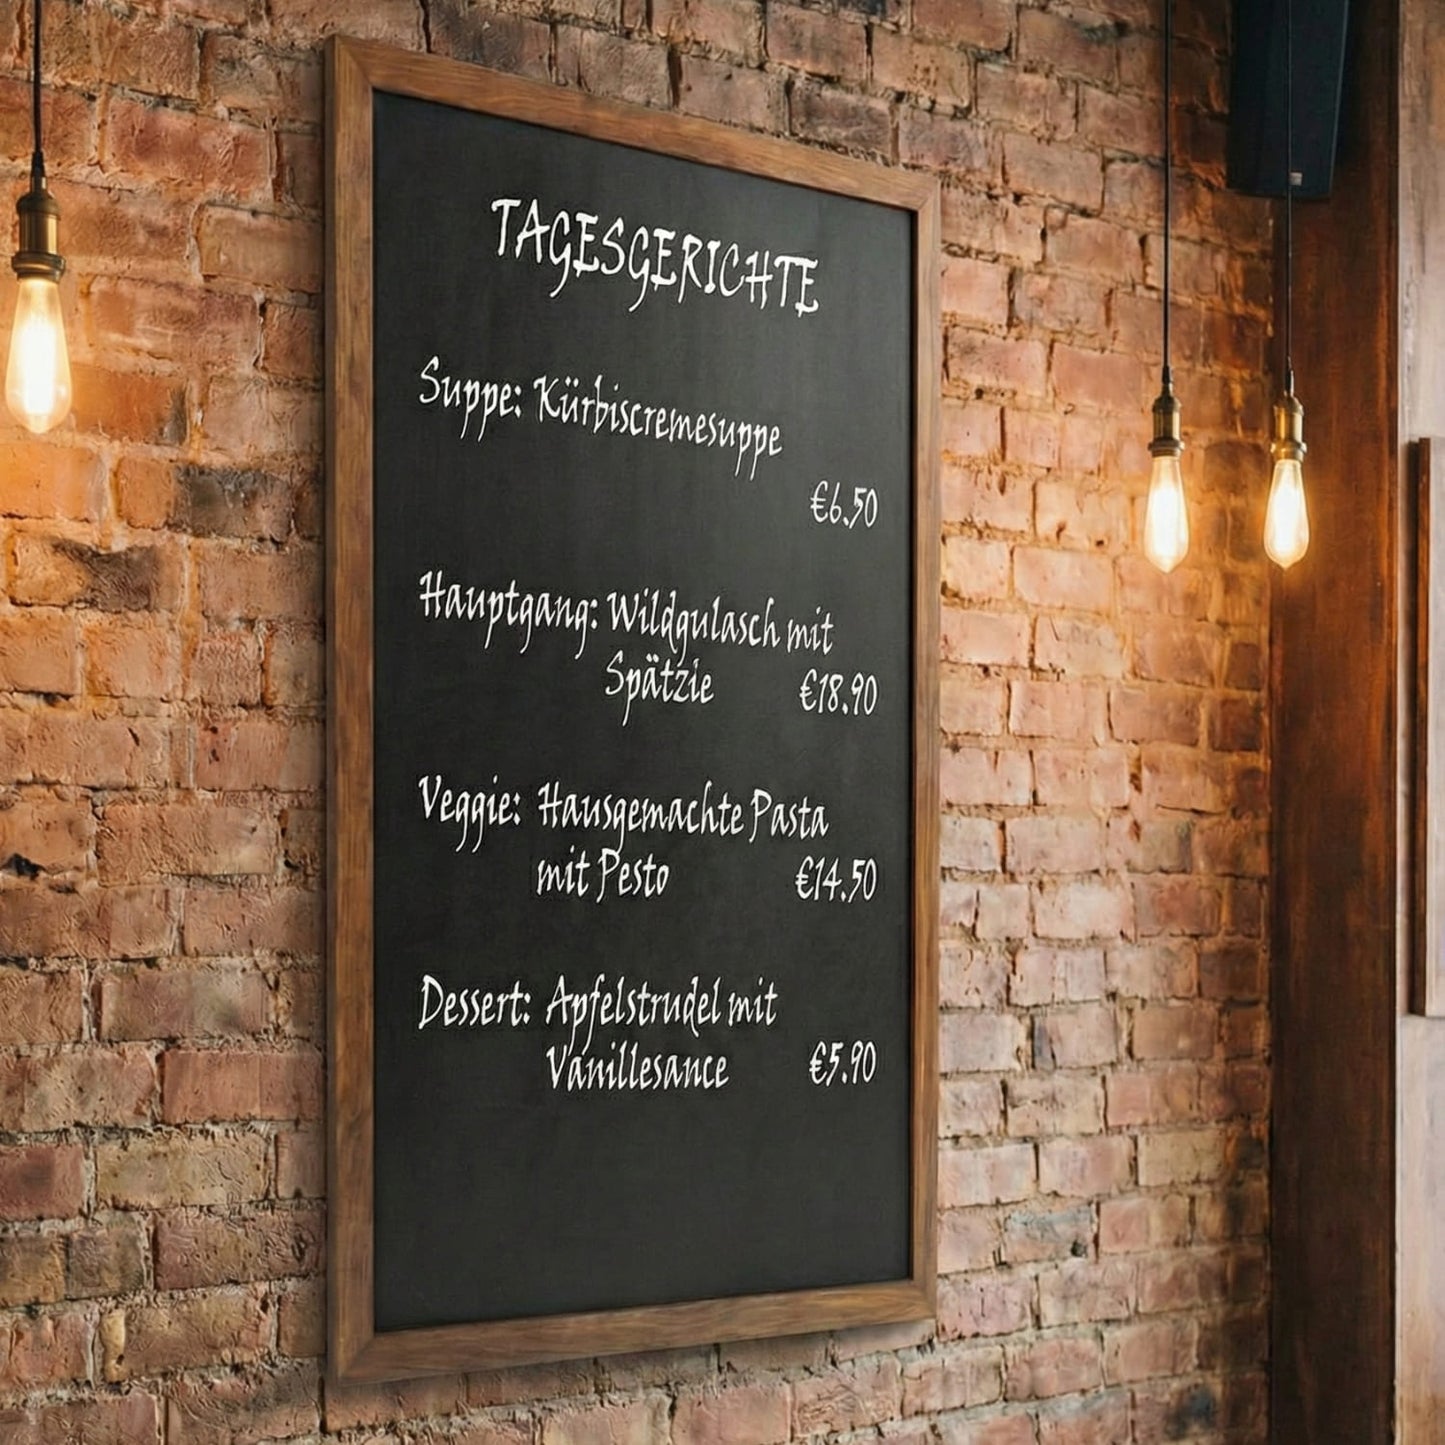 TAGESGERICHTE
Suppe: Kürbiscremesuppe
€6.50
Hauptgang: Wildgulasch mit
Spätzie €18.90
Veggie: Hausgemachte Pasta
mit Pesto €14.50
Dessert: Apfelstrudel mit
Vanillesance €5.90